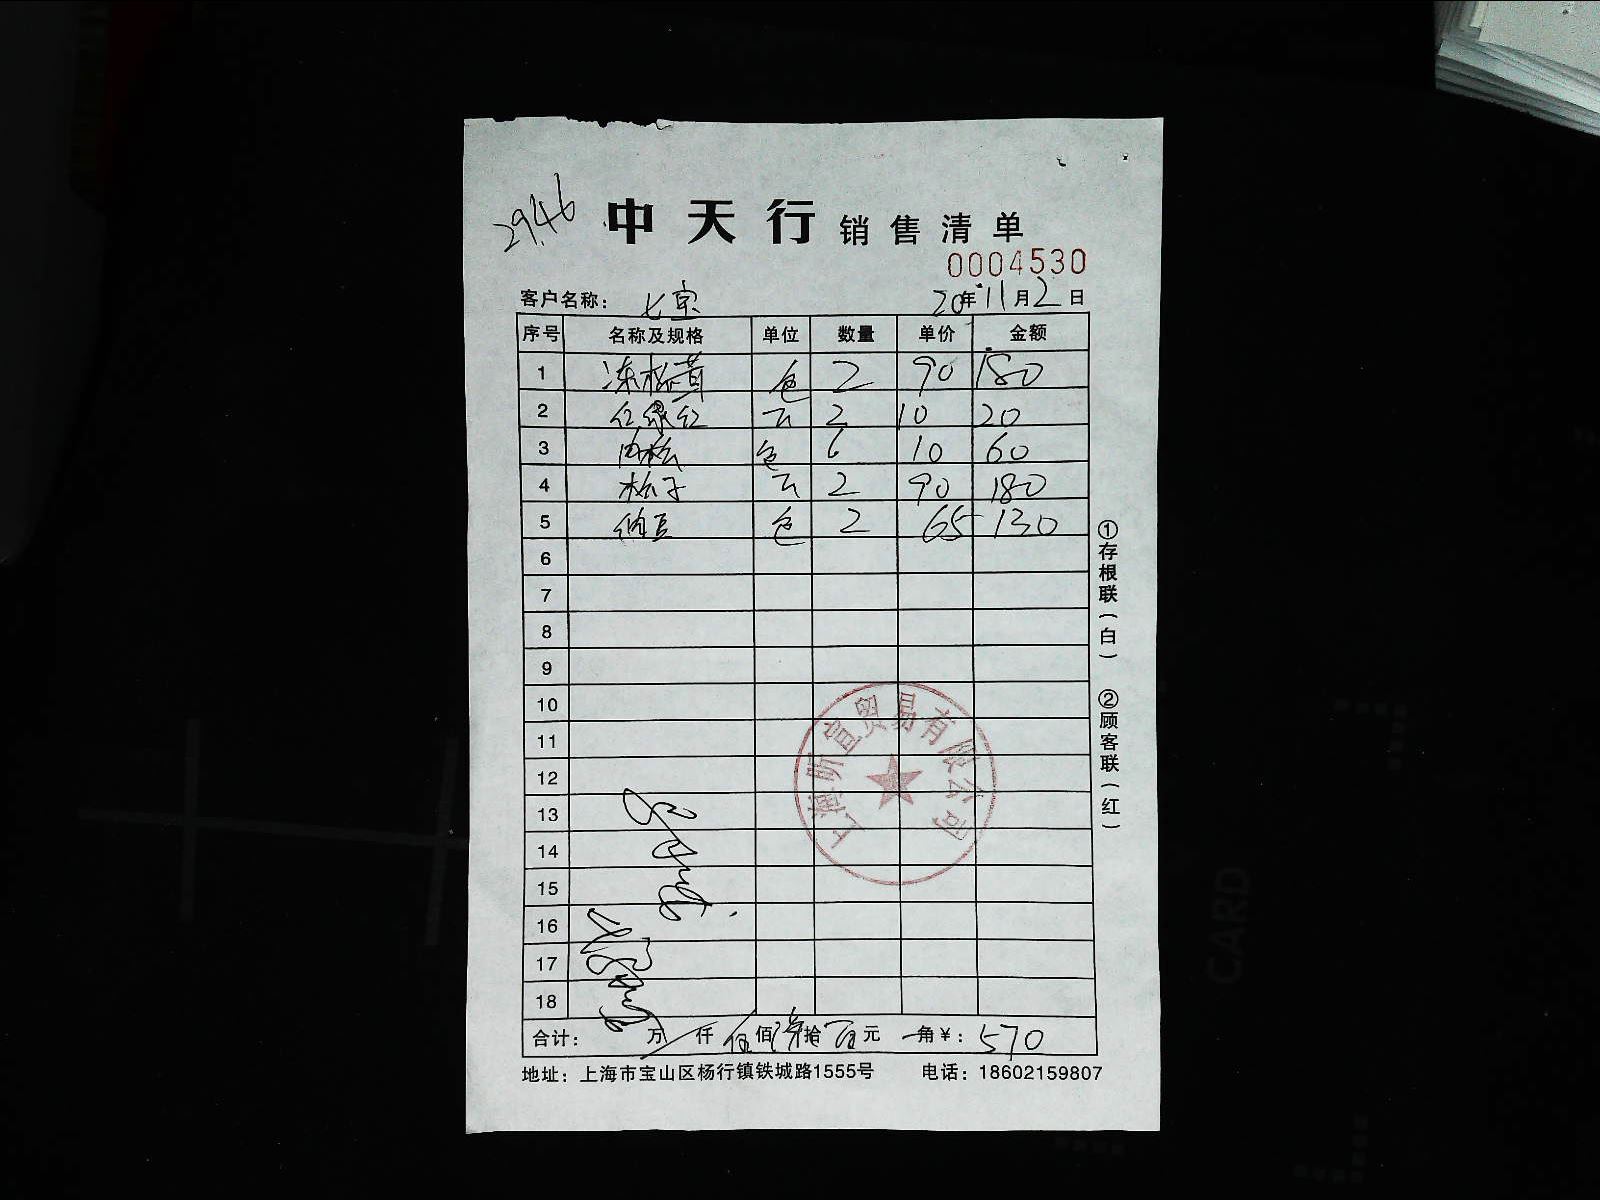 2946
中天行 销售清单
0004530
客户名称： 七宝 20年11月2日
序号 名称及规格 单位 数量 单价 金额
1 包 2 90 180
2 红绿红 2 10 20
3 肉松 包 6 10 60
4 松子 2 90 180
5 纳豆 包 2 65 130
6
7
8
9
10
11
12
13
14
15
16
17
18
上海昕宣贸易有限公司
合计： 万 仟 伍佰 柒拾 零元 角￥： 570
地址：上海市宝山区杨行镇铁城路1555号 电话：18602159807
①存根联（白） ②顾客联（红）
CARD